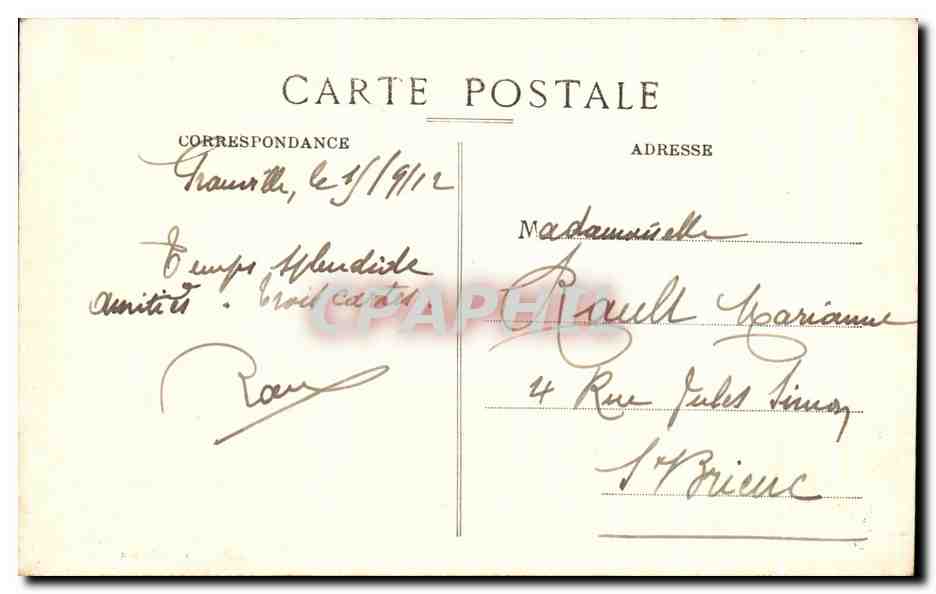 CARTE POSTALE
CORRESPONDANCE
Granville, le 15/9/12
Temps splendide
amitiés. trois cartes.
ADRESSE
Mademoiselle
Rault Marianne
4 Rue Jules Simon
St Brieuc
CPAPHIL